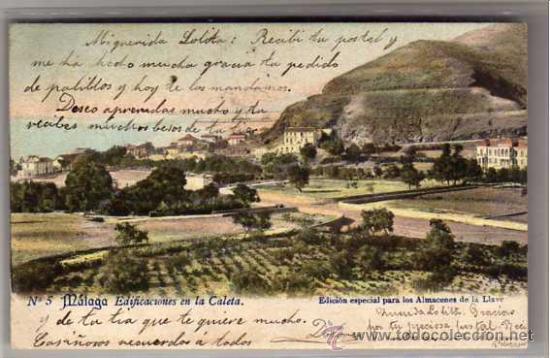 Mi querida Lolita: Recibi tu postal y
me ha hecho mucha gracia tu pedido
de palillos y hoy te los mandamos.
Deseo aprendas mucho y tu
recibes muchos besos de tu
Nº 5 Málaga Edificaciones en la Caleta.
Edición especial para los Almacenes de la Llave
y de tu tia que te quiere mucho.
Cariñosos recuerdos a todos
Querida Lolita. Gracias
por tu preciosa postal
todocoleccion.net